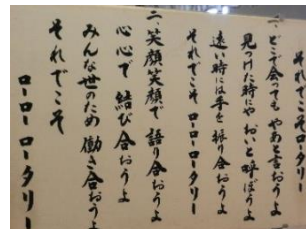 それでこそ
一、どこで会っても やあと言おうよ
見つけた時にや おいと呼ぼうよ
遠い時には手を 振り合おうよ
それでこそ ローローロータリー
二、笑顔笑顔で 語り合おうよ
心心で 結び合おうよ
みんな世のため 働き合おうよ
それでこそ
ローローロータリー